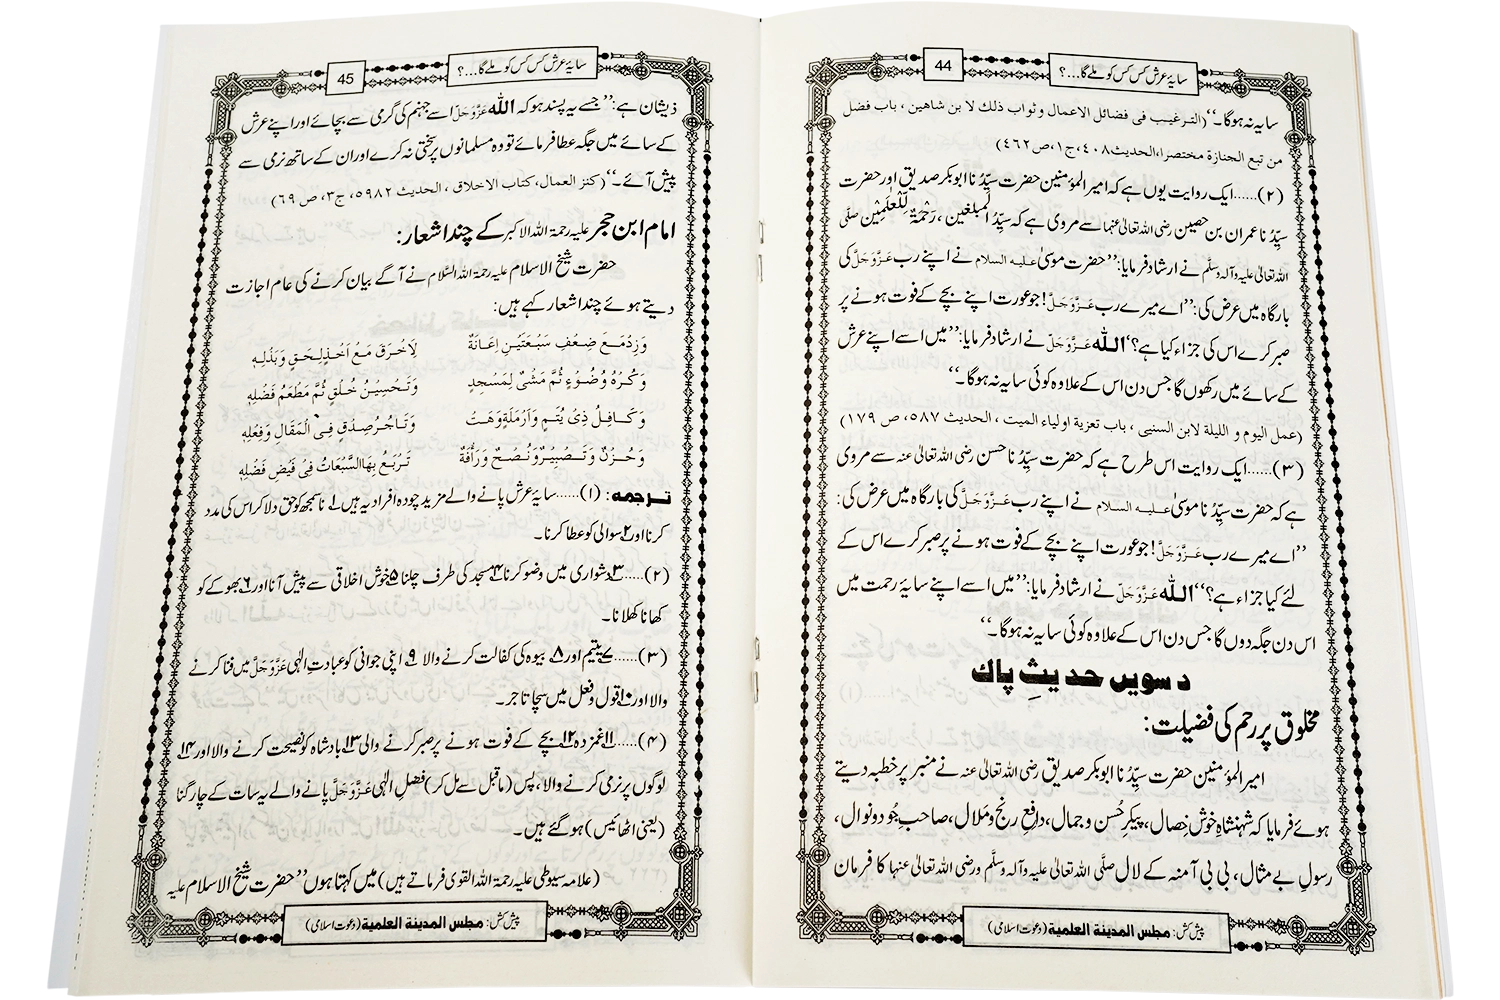 سایۂ عرش کس کس کو ملے گا...؟
44
سایہ نہ ہوگا۔‘‘ (الترغیب فی فضائل الاعمال و ثواب ذلك لا بن شاهین ، باب فضل
من تبع الجنازة مختصرا،الحدیث۴۰۸،ج۱،ص۴۶۲)
(۲)......ایک روایت یوں ہے کہ امیر المؤمنین حضرت سیِّدُنا ابوبکر صدیق اور حضرت
سیِّدُنا عمران بن حصین رضی اللہ تعالیٰ عنہما سے مروی ہے کہ سیِّدُ المبلغین ، رَحْمَۃٌ لِّلْعٰلَمِیْن صلَّی
اللہ تعالیٰ علیہ وآلہ وسلَّم نے ارشاد فرمایا: ’’حضرت موسیٰ علیہ السلام نے اپنے رب عَزَّوَجَلَّ کی
بارگاہ میں عرض کی: ’’اے میرے رب عَزَّوَجَلَّ! جو عورت اپنے بچے کے فوت ہونے پر
صبر کرے اس کی جزاء کیا ہے؟‘‘ اللہ عَزَّوَجَلَّ نے ارشاد فرمایا: ’’میں اسے اپنے عرش
کے سائے میں رکھوں گا جس دن اس کے علاوہ کوئی سایہ نہ ہوگا۔‘‘
(عمل الیوم و اللیلة لابن السنیی ، باب تعزیة اولیاء المیت ، الحدیث ۵۸۷، ص ۱۷۹)
(۳)......ایک روایت اس طرح ہے کہ حضرت سیِّدُنا حسن رضی اللہ تعالیٰ عنہ سے مروی
ہے کہ حضرت سیِّدُنا موسیٰ علیہ السلام نے اپنے رب عَزَّوَجَلَّ کی بارگاہ میں عرض کی:
’’اے میرے رب عَزَّوَجَلَّ! جو عورت اپنے بچے کے فوت ہونے پر صبر کرے اس کے
لئے کیا جزاء ہے؟‘‘ اللہ عَزَّوَجَلَّ نے ارشاد فرمایا: ’’میں اسے اپنے سایۂ رحمت میں
اس دن جگہ دوں گا جس دن اس کے علاوہ کوئی سایہ نہ ہوگا۔‘‘
دسویں حدیثِ پاك
مخلوق پر رحم کی فضیلت:
امیر المؤمنین حضرت سیِّدُنا ابوبکر صدیق رضی اللہ تعالیٰ عنہ نے منبر پر خطبہ دیتے
ہوئے فرمایا کہ شہنشاہِ خوش خِصال، پیکرِ حُسن و جمال، دافعِ رنج و مَلال، صاحبِ جُود و نوال،
رسولِ بے مثال، بی بی آمنہ کے لال صلَّی اللہ تعالیٰ علیہ وآلہ وسلَّم ورضی اللہ تعالیٰ عنہا کا فرمان
پیش کش: مجلس المدینة العلمیة (دعوتِ اسلامی)
سایۂ عرش کس کس کو ملے گا...؟
45
ذیشان ہے: ’’جسے یہ پسند ہو کہ اللہ عَزَّوَجَلَّ اسے جہنم کی گرمی سے بچائے اور اپنے عرش
کے سائے میں جگہ عطا فرمائے تو وہ مسلمانوں پر سختی نہ کرے اور ان کے ساتھ نرمی سے
پیش آئے۔‘‘ (کنز العمال، کتاب الاخلاق ، الحدیث ۵۹۸۲، ج۳، ص ۶۹)
امام ابن حجر علیہ رحمۃ اللہ الاکبر کے چند اشعار:
حضرت شیخ الاسلام علیہ رحمۃ اللہ السَّلام نے آگے بیان کرنے کی عام اجازت
دیتے ہوئے چند اشعار کہے ہیں:
وَزِدْ مَعَ ضِعْفِ سَبْعَتَیْنِ اِعَانَةُ لِاَخْرَقَ مَعُ اَخْذٍ لِحَقٍ وَبَذْلِهٖ
وَکُرْهُ وُضُوْءٍ ثُمَّ مَشْیٌ لِمَسْجِدٍ وَتَحْسِیْنُ خُلْقٍ ثُمَّ مَطْعَمُ فَضْلِهٖ
وَکَافِلُ ذِیْ یُتْمٍ وَاَرْمَلَةٍ وَهَتْ وَتَاجُرُ صِدْقٍ فِی الْمَقَالِ وَفِعْلِهٖ
وَحُزْنٌ وَتَصْبِیْرٌ وَنُصْحٌ وَرَأْفَةٌ تُرَبِّعُ بِهَا السَّبْعَاتُ فِیْ فَیْضِ فَضْلِهٖ
ترجمه: (۱)......سایۂ عرش پانے والے مزید چودہ افراد یہ ہیں ۱؎ ناسمجھ کو حق دلا کر اس کی مدد
کرنا اور ۲؎ سوالی کو عطا کرنا۔
(۲)......۳؎ دشواری میں وضو کرنا ۴؎ مسجد کی طرف چلنا ۵؎ خوش اخلاقی سے پیش آنا اور ۶؎ بھوکے کو
کھانا کھلانا۔
(۳)......۷؎ یتیم اور ۸؎ بیوہ کی کفالت کرنے والا ۹؎ اپنی جوانی کو عبادتِ الٰہی عَزَّوَجَلَّ میں فنا کرنے
والا اور ۱۰؎ قول و فعل میں سچا تاجر۔
(۴)......۱۱؎ غمزدہ ۱۲؎ بچے کے فوت ہونے پر صبر کرنے والی ۱۳؎ بادشاہ کو نصیحت کرنے والا اور ۱۴؎
لوگوں پر نرمی کرنے والا، پس (ماقبل سے مل کر) فضلِ الٰہی عَزَّوَجَلَّ پانے والے یہ سات کے چار گنا
(یعنی اٹھائیس) ہو گئے ہیں۔
(علامہ سیوطی علیہ رحمۃ اللہ القوی فرماتے ہیں) میں کہتا ہوں ’’حضرت شیخ الاسلام علیہ
پیش کش: مجلس المدینة العلمیة (دعوتِ اسلامی)